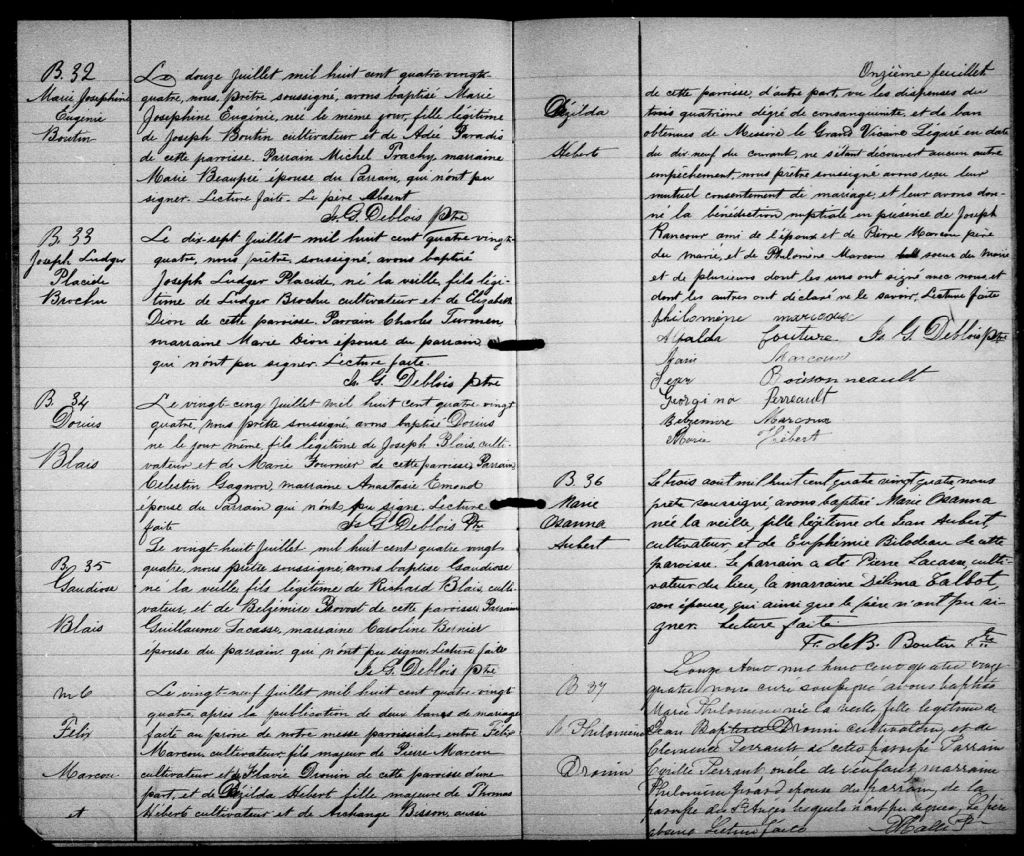 B. 32
Marie Josephine
Eugenie
Boutin
Le douze Juillet mil huit cent quatre vingt-
quatre, nous, prêtre soussigné, avons baptisé Marie
Josephine Eugenie, née le même jour, fille légitime
de Joseph Boutin cultivateur et de Adée Paradis
de cette parroisse. Parrain Michel Trachy, marraine
Marie Beaupré épouse du Parrain, qui n'ont pu
signer. Lecture faite. Le père Absent
Js. G. Deblois ptre
B. 33
Joseph Ludger
Placide
Brochu
Le dix-sept Juillet mil huit cent quatre vingt-
quatre, nous prêtre, soussigné, avons baptisé
Joseph Ludger Placide, né la veille, fils légi-
time de Ludger Brochu cultivateur et de Elizabeth
Dion de cette parroisse. Parrain Charles Turmen
marraine Marie Dion épouse du parrain
qui n'ont pu signer. Lecture faite.
Js. G. Deblois ptre
B. 34
Dorius
Blais
Le vingt-cinq Juillet mil huit cent quatre vingt
quatre, nous prêtre soussigné, avons baptisé Dorius
né le jour même, fils légitime de Joseph Blais, culti-
vateur et de Marie Fournier de cette parroisse, Parrain
Celestin Gagnon, marraine Anastasie Emond
épouse du Parrain qui n'ont pu signé. Lecture
fait Js G. Deblois Ptre
B. 35
Gaudiose
Blais
Le vingt-huit Juillet mil huit cent quatre vingt
quatre, nous prêtre soussigné, avons baptisé Gaudiose
né la veille, fils légitime de Richard Blais, culti-
vateur, et de Belzémise Provost de cette parroisse, Parrain
Guillaume Lacasse, marraine Caroline Bernier
épouse du parrain qui n'ont pu signer. Lecture faite
Js G. Deblois ptre
m 6
Felix
Marcou
et
Le vingt-neuf Juillet mil huit cent quatre-vingt
quatre, après la publication de deux bans de mariage
faite au prône de notre messe parroissiale, entre Felix
Marcou, cultivateur, fils majeur de Pierre Marcou
cultivateur et de Flavie Drouin de cette paroisse d'une
part, et de Exilda Hébert fille majeure de Thomas
Hébert cultivateur et de Archange Bisson, aussi
Onzième feuillet
Exilda
Hébert
de cette parroisse, d'autre part, vu les dispenses du
trois quatrième dégré de consanguinité, et de ban
obtenues de Messire le Grand Vicaire Légaré en date
du dix-neuf du courant, ne s'étant découvert aucun autre
empêchement, nous prêtre soussigné avons reçu leur
mutuel consentement de mariage, et leur avons don-
né la bénédiction nuptiale en présence de Joseph
Rancour ami de l'époux et de Pierre Marcou père
du marié, et de Philomène Marcoux soeur du marié
et de plusieurs dont les uns ont signé avec nous, et
dont les autres ont declaré ne le savoir, Lecture faite
philomène marcoux
Alfalda Couture Js G. Deblois ptre
Marie Marcoux
Jean Boissonneault
Georgina Perreault
Belzemire Marcoux
Marie Hébert
B. 36
Marie
Osanna
Aubert
Le trois août mil huit cent quatre vingt quatre nous
prêtre soussigné, avons baptisé Marie Osanna
née la veille, fille légitime de Jean Aubert,
cultivateur, et de Euphémie Bilodeau de cette
paroisse. Le parrain a été Pierre Lacasse, culti-
vateur du lieu, la marraine Délima Talbot,
son épouse, qui ainsi que le père n'ont pu si-
gner. Lecture faite
F. de B. Boutin Ptre
B 37
M. Philomène
Drouin
L'onze Aout mil huit cent quatre vingt
quatre nous curé soussigné avons baptisé
Marie Philomène née la veille fille légitime de
Jean Baptiste Drouin cultivateur, et de
Clemence Perrault de cette paroisse Parrain
Cyrille Perraut, oncle de l'enfant, marraine
Philomène Girard épouse du parrain, de la
paroisse de St Anges lesquels n'ont pu signer, Le père
absent Lecture faite